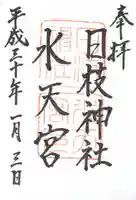 奉拝
日枝神社
水天宮
平成三十年一月三日